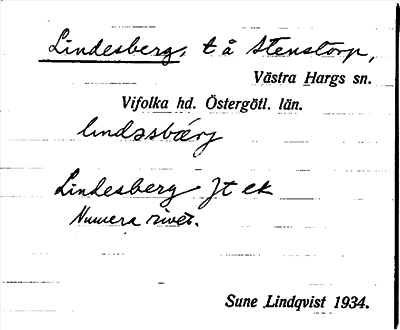 Lindesberg, t å Stenstorp,
Västra Hargs sn.
Vifolka hd. Östergötl. län.
lındəsbærj
Lindesberg Jt ek
Numera rivet.
Sune Lindqvist 1934.